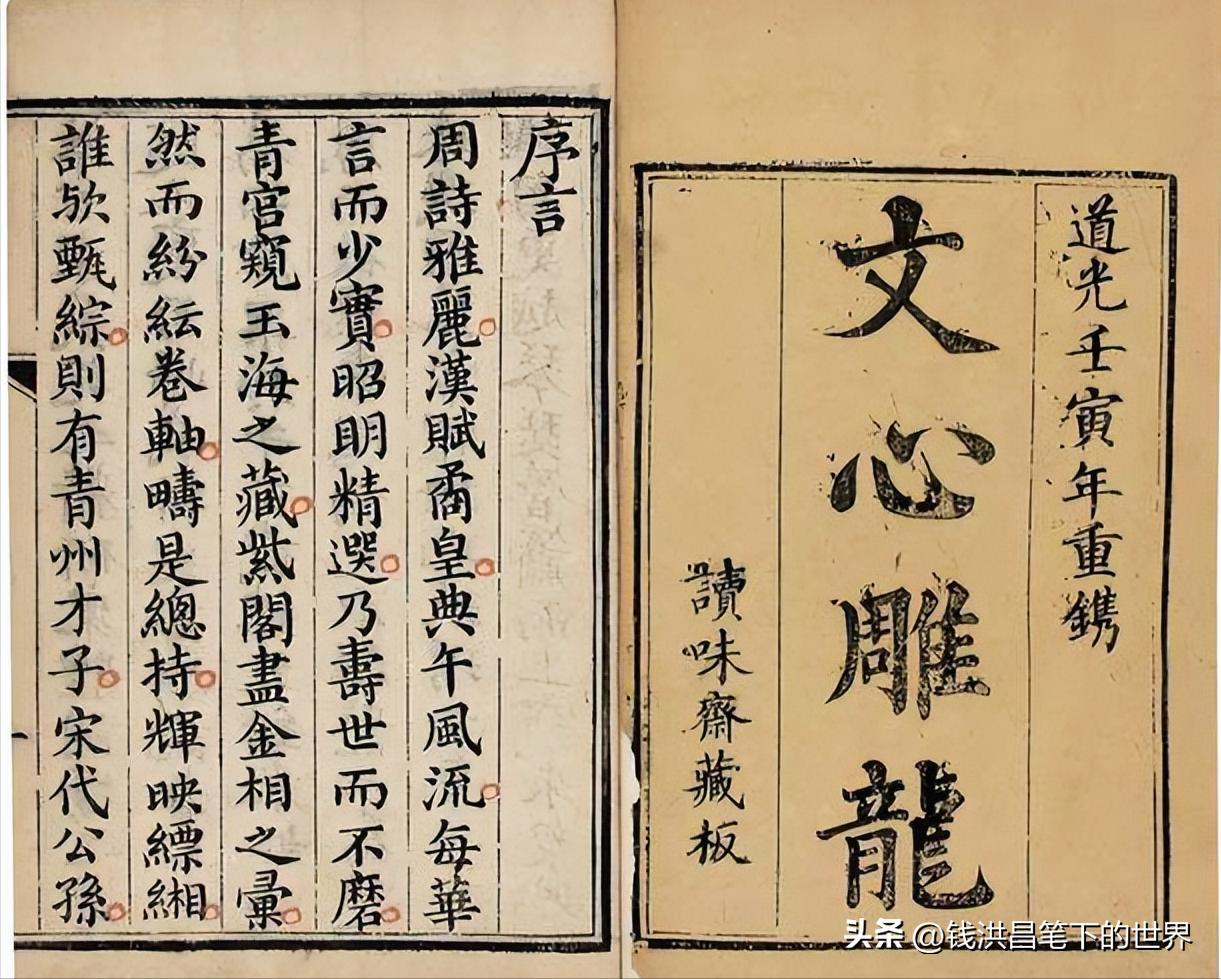 道光壬寅年重鐫
文心雕龍
讀味齋藏板
序言
周詩雅麗漢賦矞皇典午風流每華
言而少實昭明精選乃壽世而不磨
青宮窺玉海之藏紫閣盡金相之彙
然而紛紜卷軸疇是總持輝映縹緗
誰歟甄綜則有青州才子宋代公孫
头条 @钱洪昌笔下的世界